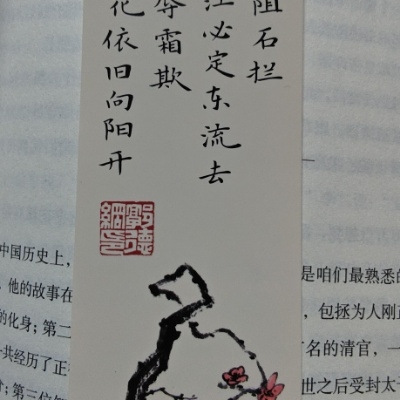 阻石拦
江必定东流去
辱霜欺
花依旧向阳开
郭德綱印
中国历史上,
他的故事在
的化身;第二
一共经历了正
;第三位
是咱们最熟悉的
,包拯为人刚
名的清官,一
世之后受封太